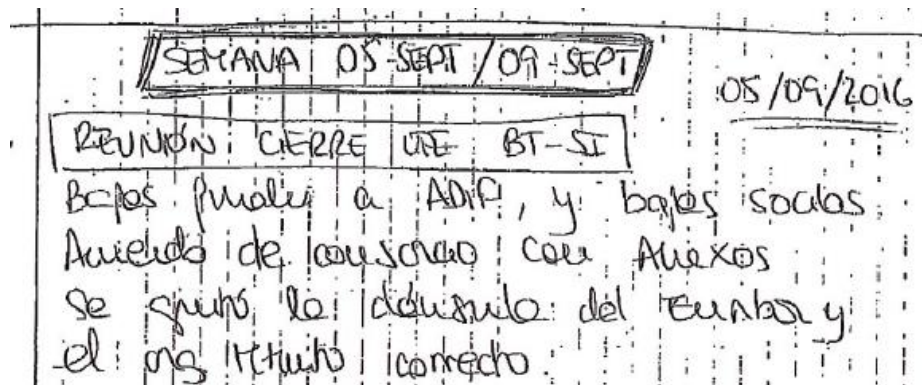 SEMANA 05-SEPT / 09-SEPT
05/09/2016
REUNIÓN CIERRE UTE BT-SI
Bajas finales a ADIF, y bajas socios
Acuerdo de consorcio con Anexos
Se quitó la cláusula del y
el correcto.